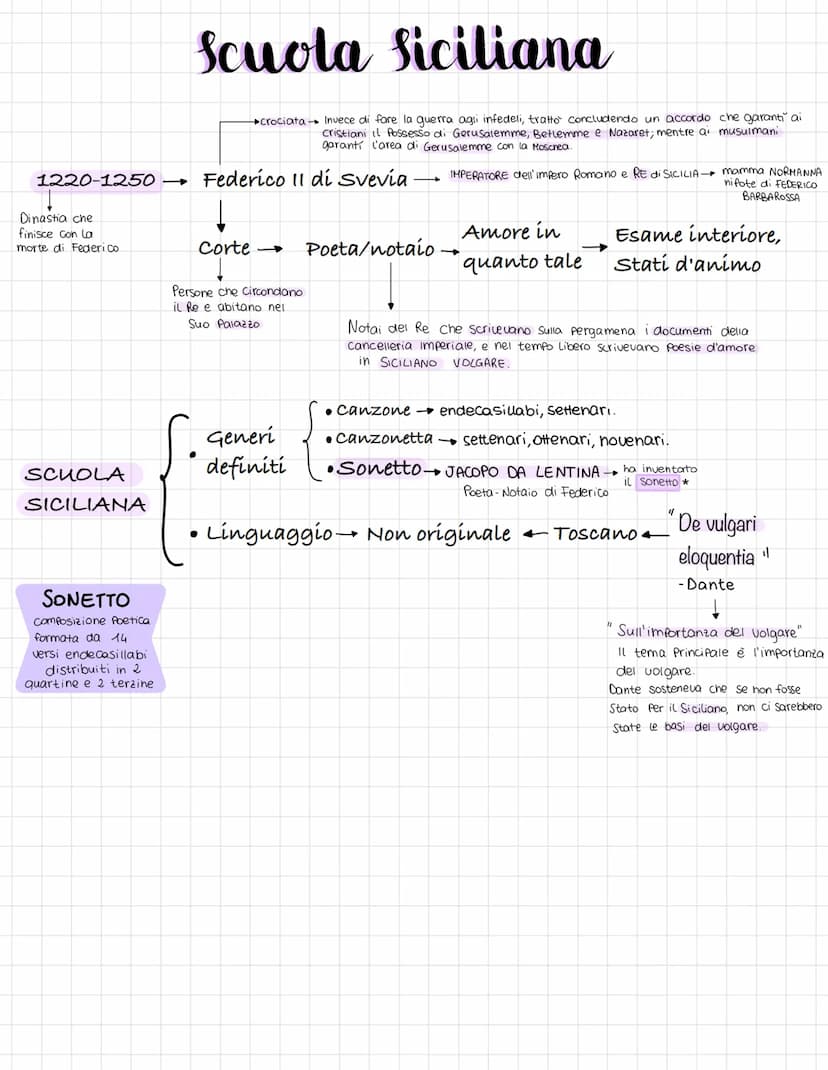 Scuola Siciliana
crociata → Invece di fare la guerra agli infedeli, trattò concludendo un accordo che garantì ai
cristiani il possesso di Gerusalemme, Betlemme e Nazaret; mentre ai musulmani
garantì l'area di Gerusalemme con la Moschea.
1220-1250 → Federico II di Svevia → IMPERATORE dell'impero Romano e RE di SICILIA → mamma NORMANNA
nipote di FEDERICO
BARBAROSSA
Dinastia che
finisce con la
morte di Federico
Corte → Poeta/notaio → Amore in
quanto tale → Esame interiore,
Stati d'animo
Persone che circondano
il Re e abitano nel
suo Palazzo
Notai del Re che scrivevano sulla pergamena i documenti della
cancelleria imperiale, e nel tempo libero scrivevano poesie d'amore
in SICILIANO VOLGARE.
SCUOLA
SICILIANA
• Generi
definiti
• Canzone → endecasillabi, settenari.
• Canzonetta → settenari, ottenari, novenari.
• Sonetto → JACOPO DA LENTINA → ha inventato
il sonetto *
Poeta-Notaio di Federico
• Linguaggio → Non originale ← Toscano ← "De vulgari
eloquentia"
- Dante
SONETTO
composizione poetica
formata da 14
versi endecasillabi
distribuiti in 2
quartine e 2 terzine
"Sull'importanza del volgare"
Il tema principale è l'importanza
del volgare.
Dante sosteneva che se non fosse
stato per il Siciliano, non ci sarebbero
state le basi del volgare.